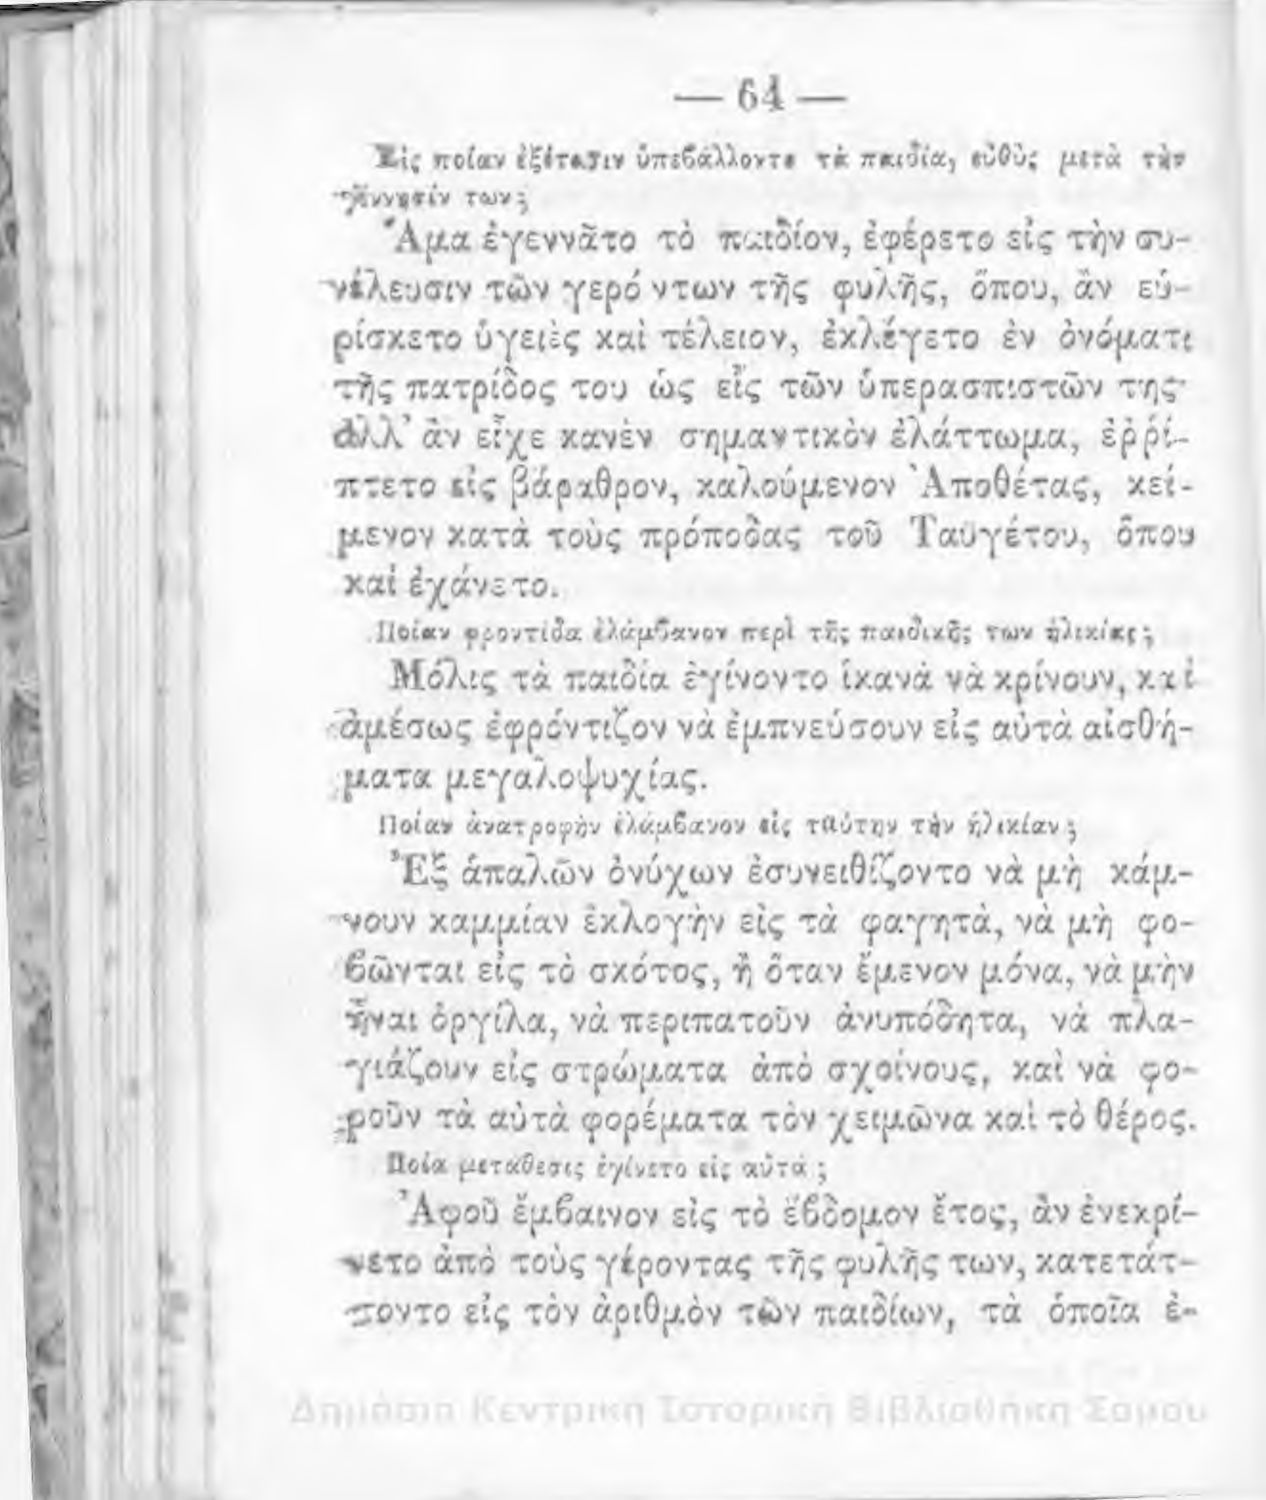 — 64 —
Εἰς ποίαν ἐξέτασιν ὑπεβάλλοντο τὰ παιδία, εὐθὺς μετὰ τὴν
γέννησίν των;
Ἅμα ἐγεννᾶτο τὸ παιδίον, ἐφέρετο εἰς τὴν συ-
νέλευσιν τῶν γερόντων τῆς φυλῆς, ὅπου, ἂν εὑ-
ρίσκετο ὑγειὲς καὶ τέλειον, ἐκλέγετο ἐν ὀνόματι
τῆς πατρίδος του ὡς εἷς τῶν ὑπερασπιστῶν της·
ἀλλ' ἂν εἶχε κανὲν σημαντικὸν ἐλάττωμα, ἐῤῥί-
πτετο εἰς βάραθρον, καλούμενον Ἀποθέτας, κεί-
μενον κατὰ τοὺς πρόποδας τοῦ Ταϋγέτου, ὅπου
καὶ ἐχάνετο.
Ποίαν φροντίδα ἐλάμβανον περὶ τῆς παιδικῆς των ἡλικίας;
Μόλις τὰ παιδία ἐγίνοντο ἱκανὰ νὰ κρίνουν, καὶ
ἀμέσως ἐφρόντιζον νὰ ἐμπνεύσουν εἰς αὐτὰ αἰσθή-
ματα μεγαλοψυχίας.
Ποίαν ἀνατροφὴν ἐλάμβανον εἰς ταύτην τὴν ἡλικίαν;
Ἐξ ἁπαλῶν ὀνύχων ἐσυνειθίζοντο νὰ μὴ κάμ-
νουν καμμίαν ἐκλογὴν εἰς τὰ φαγητὰ, νὰ μὴ φο-
βῶνται εἰς τὸ σκότος, ἢ ὅταν ἔμενον μόνα, νὰ μὴν
ἦναι ὀργίλα, νὰ περιπατοῦν ἀνυπόδητα, νὰ πλα-
γιάζουν εἰς στρώματα ἀπὸ σχοίνους, καὶ νὰ φο-
ροῦν τὰ αὐτὰ φορέματα τὸν χειμῶνα καὶ τὸ θέρος.
Ποία μετάθεσις ἐγίνετο εἰς αὐτά;
Ἀφοῦ ἔμβαινον εἰς τὸ ἕβδομον ἔτος, ἂν ἐνεκρί-
νετο ἀπὸ τοὺς γέροντας τῆς φυλῆς των, κατετάτ-
τοντο εἰς τὸν ἀριθμὸν τῶν παιδίων, τὰ ὁποῖα ἐ-
Δημόσια Κεντρική Ιστορική Βιβλιοθήκη Σάμου